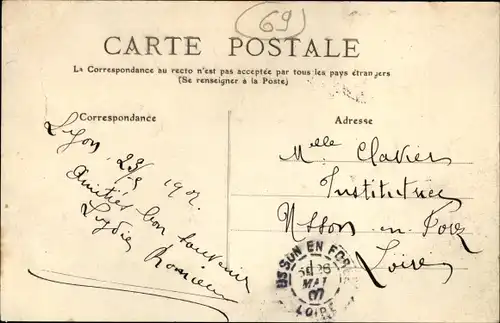 (69)
CARTE POSTALE
La Correspondance au recto n'est pas acceptée par tous les pays étrangers
(Se renseigner à la Poste)
Correspondance
Lyon, 25/5 1907
Amitiés bon souvenir
Lydie Romieux
Adresse
Melle Clavier
Institutrice
Usson en Forez
Loire
USSON EN FOREZ
26
MAI
07
LOIRE